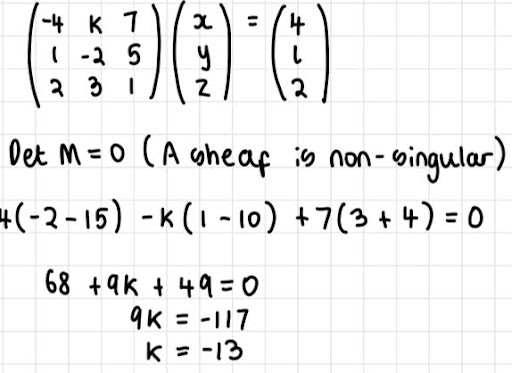 (-4 K 7) (x) = (4)
(1 -2 5) (y) (1)
(2 3 1) (z) (2)
Det M = 0 (A sheaf is non-singular)
4(-2-15) -K(1-10) +7(3+4) = 0
68 +9K + 49 = 0
9K = -117
K = -13